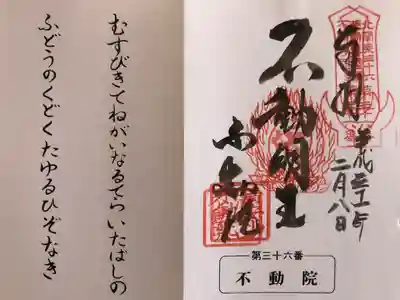 北関東三十六
奉拝
平成
二月八日
不動明王
不動院
第三十六番
不動院
むすびきてねがいなるてらいたばしの
ふどうのくどくたゆるひぞなき